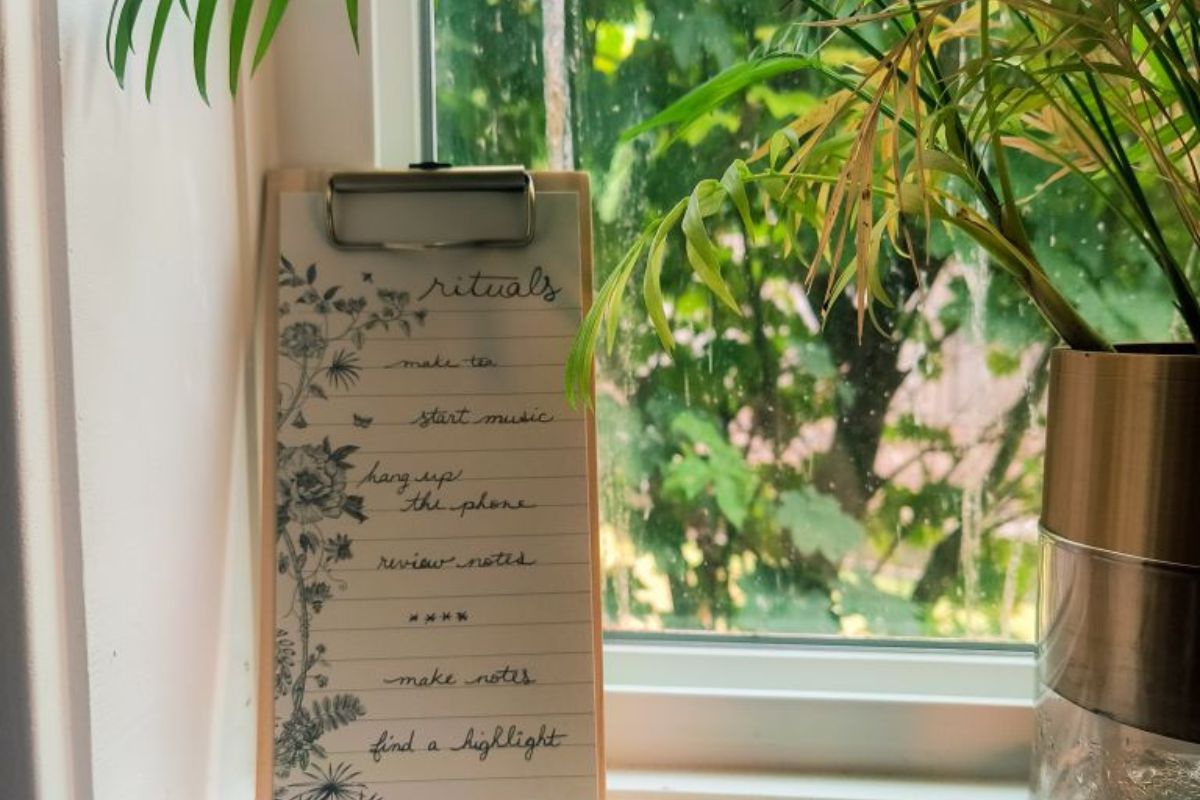 rituals
make tea
start music
hang up
the phone
review notes
****
make notes
find a highlight